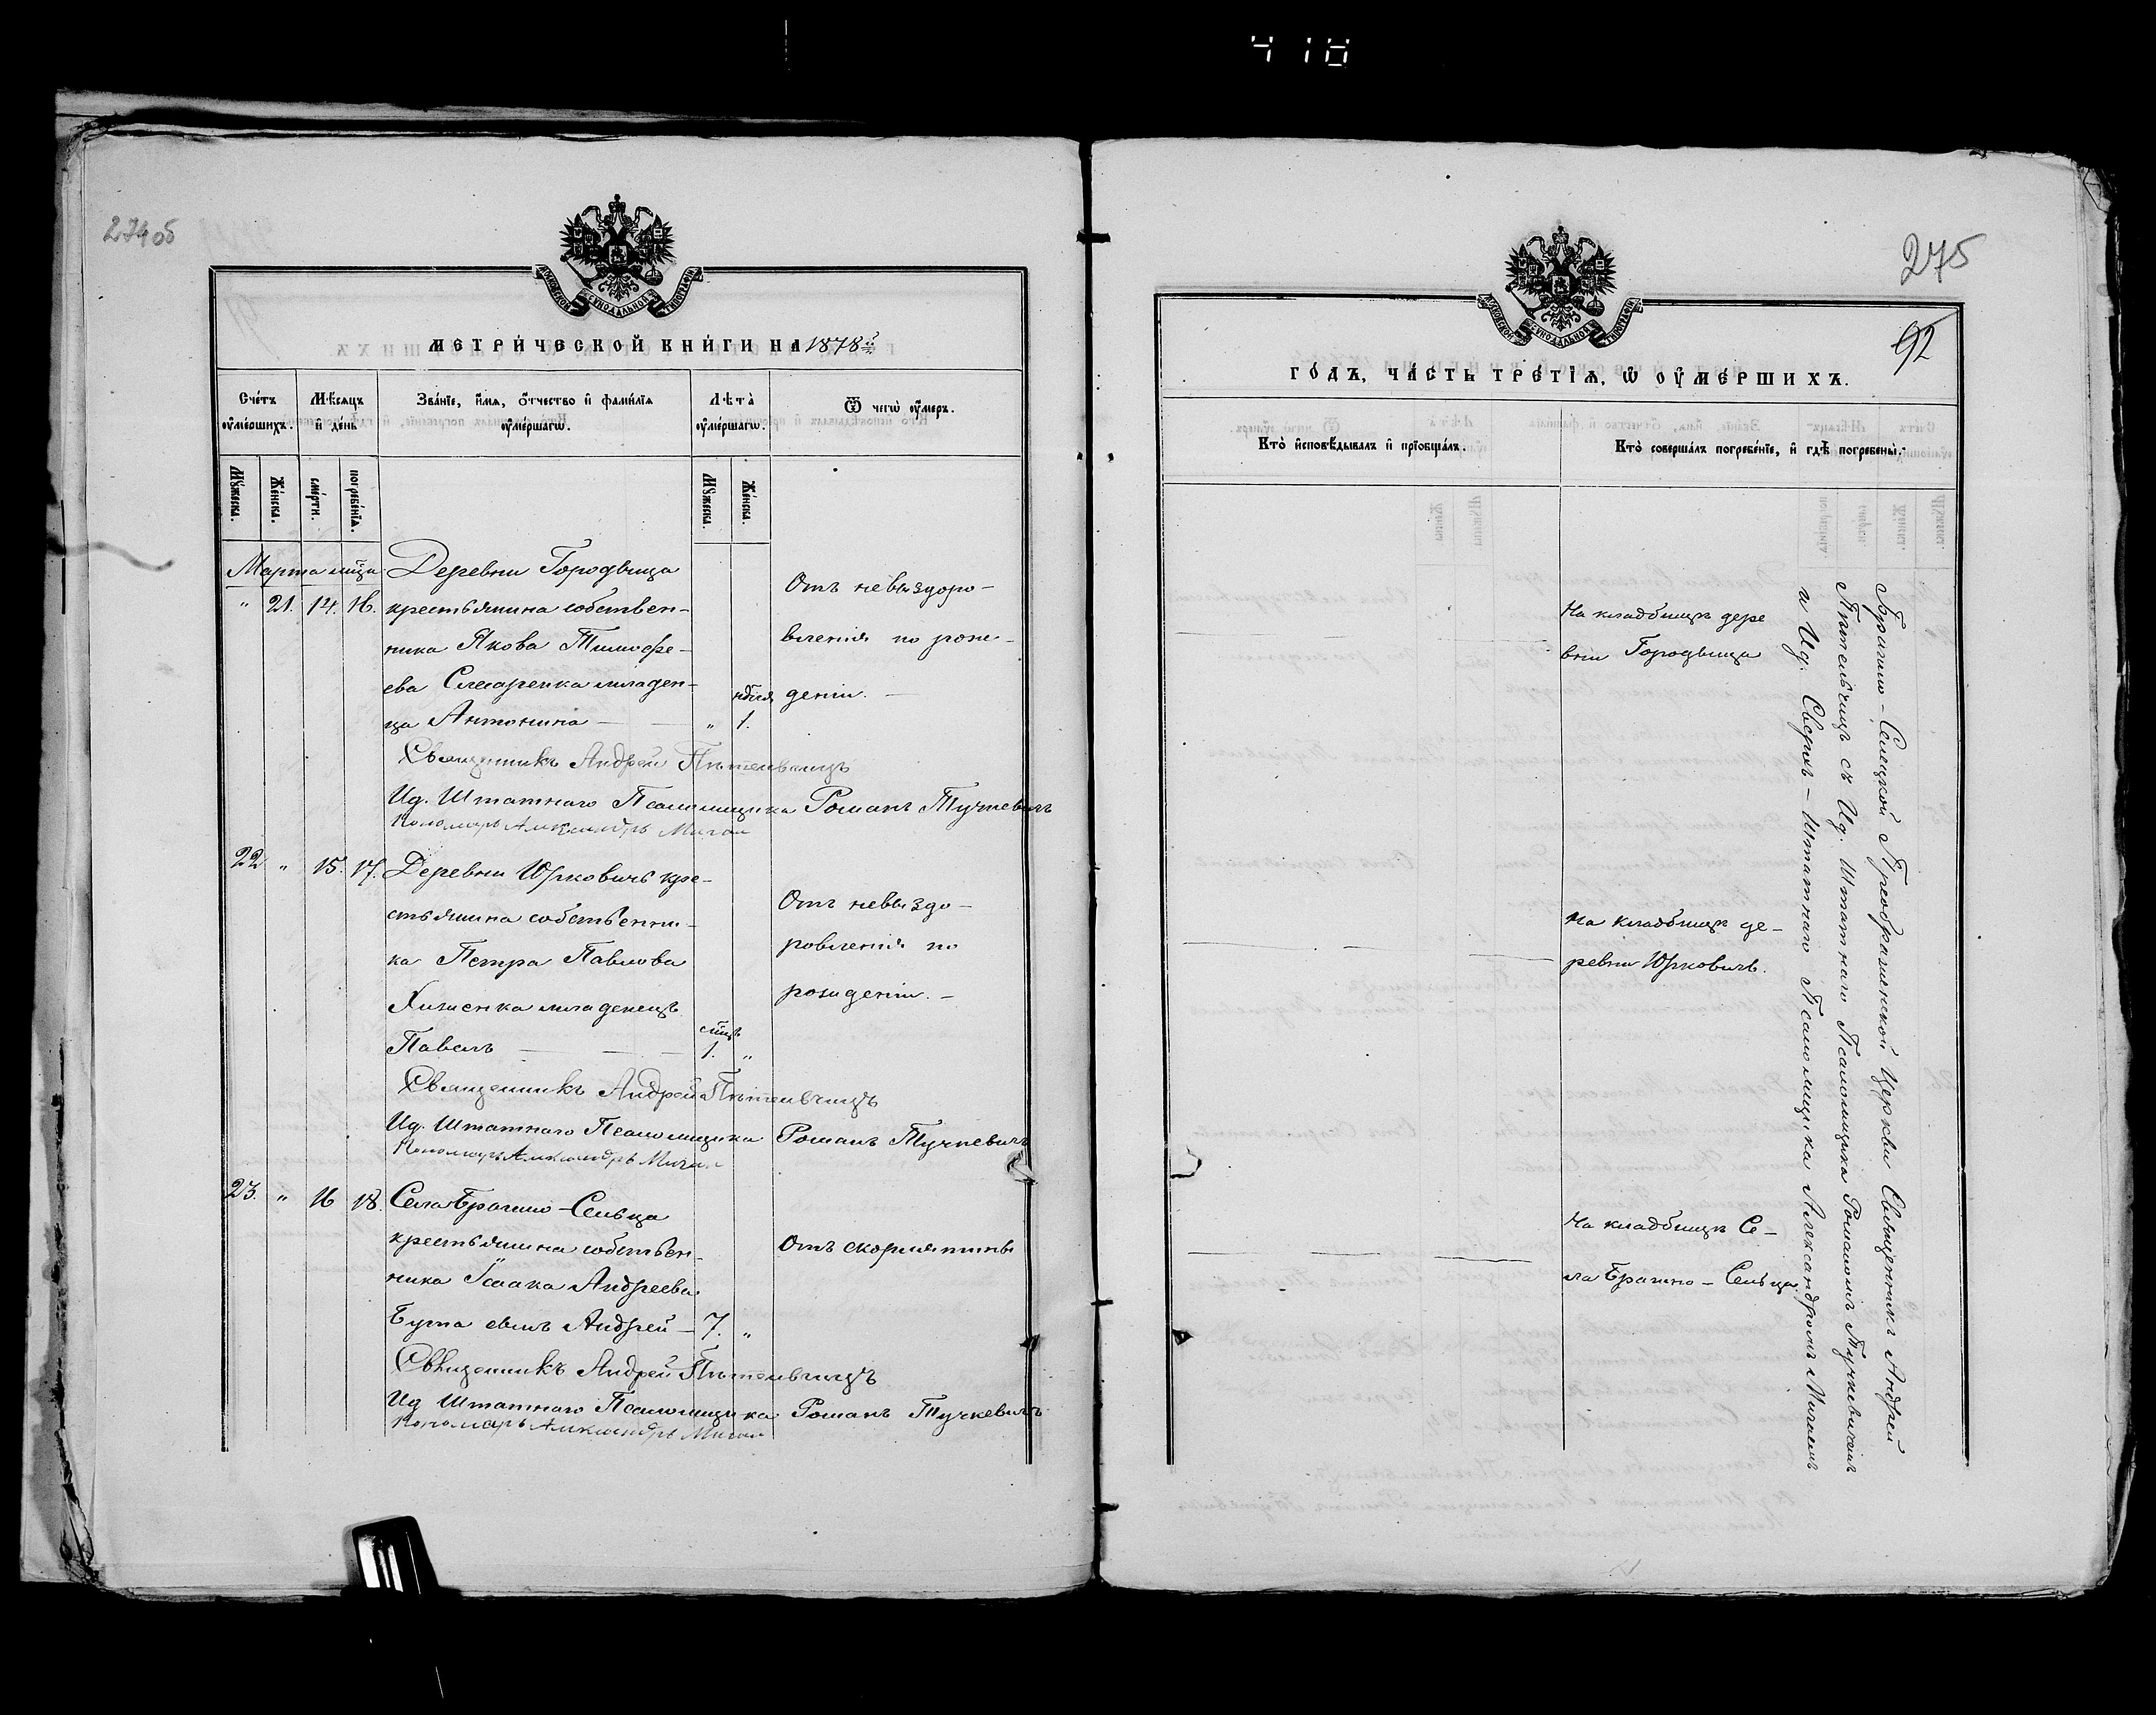 418
274 об
МОСКОВСКОЙ СѴНОДАЛЬНОЙ ТИПОГРАФІИ
МЕТРИ́ЧЕСКОЙ КНИ́ГИ НА 1878й
Сче́тъ ᲂу҆ме́ршихъ.
Мѣ́сяцъ и҆ де́нь
Зва́нїе, и҆́мѧ, ѻ҆́тчество и҆ фами́лїѧ ᲂу҆ме́ршагѡ.
Лѣ́та̀ ᲂу҆ме́ршагѡ.
Ѿ чегѡ̀ ᲂу҆́меръ.
Мꙋ́жеска.
Же́нска.
сме́рти.
погребе́нїѧ.
Мꙋ́жеска.
Же́нска.
Марта мца
" 21. 14. 16.
Деревни Городвища
крестьянина собствен-
ника Якова Тимофе-
ева Слесаренка младен-
ца Антонина — " 1.
ндѣля
Отъ невыздоро-
вленія по рож-
деніи. —
Священникъ Андрей
Ид. Штатнаго Псаломщика Романъ Тучкевичъ
Пономарь Александръ Мигай
22 " 15. 17.
Деревни Юрковичъ кре-
стьянина собственни-
ка Петра Павлова
Хиженка младенецъ
Павелъ — — — 1. "
мцъ
Отъ невыздо-
ровленія по
рожденіи. —
Священникъ Андрей
Ид. Штатнаго Псаломщика Романъ Тучкевичъ
Пономарь Александръ Мигай
23. " 16 18.
Села Брагино-Сельца
крестьянина собствен-
ника Исаака Андреева
Бута сынъ Андрей — 7. "
Отъ скорлятины
Священникъ Андрей
Ид Штатнаго Псаломщика Романъ Тучкевичъ
Пономарь Александръ Мигай
275
92
МОСКОВСКОЙ СѴНОДАЛЬНОЙ ТИПОГРАФІИ
ГО́ДЪ, ЧА́СТЬ ТРЕ́ТЇѦ, Ѡ҆ ОУ҆МЕ́РШИХЪ.
Кто̀ и҆сповѣ́дывалъ и҆ прїѡбща́лъ.
Кто̀ соверша́лъ погребе́нїе, и҆ гдѣ̀ погребены̀.
На кладбищѣ дере
вни Городвища
На кладбищѣ де-
ревни Юрковичъ.
На кладбищѣ Се-
ла Брагино-Сельца.
Брагино-Селецкой Преображенской Церкви Священникъ Андрей
съ Ид. Штатнаго Псаломщика Романомъ Тучкевичемъ
и Ид. Сверхъ-Штатнаго Псаломщика Александромъ Мигаемъ